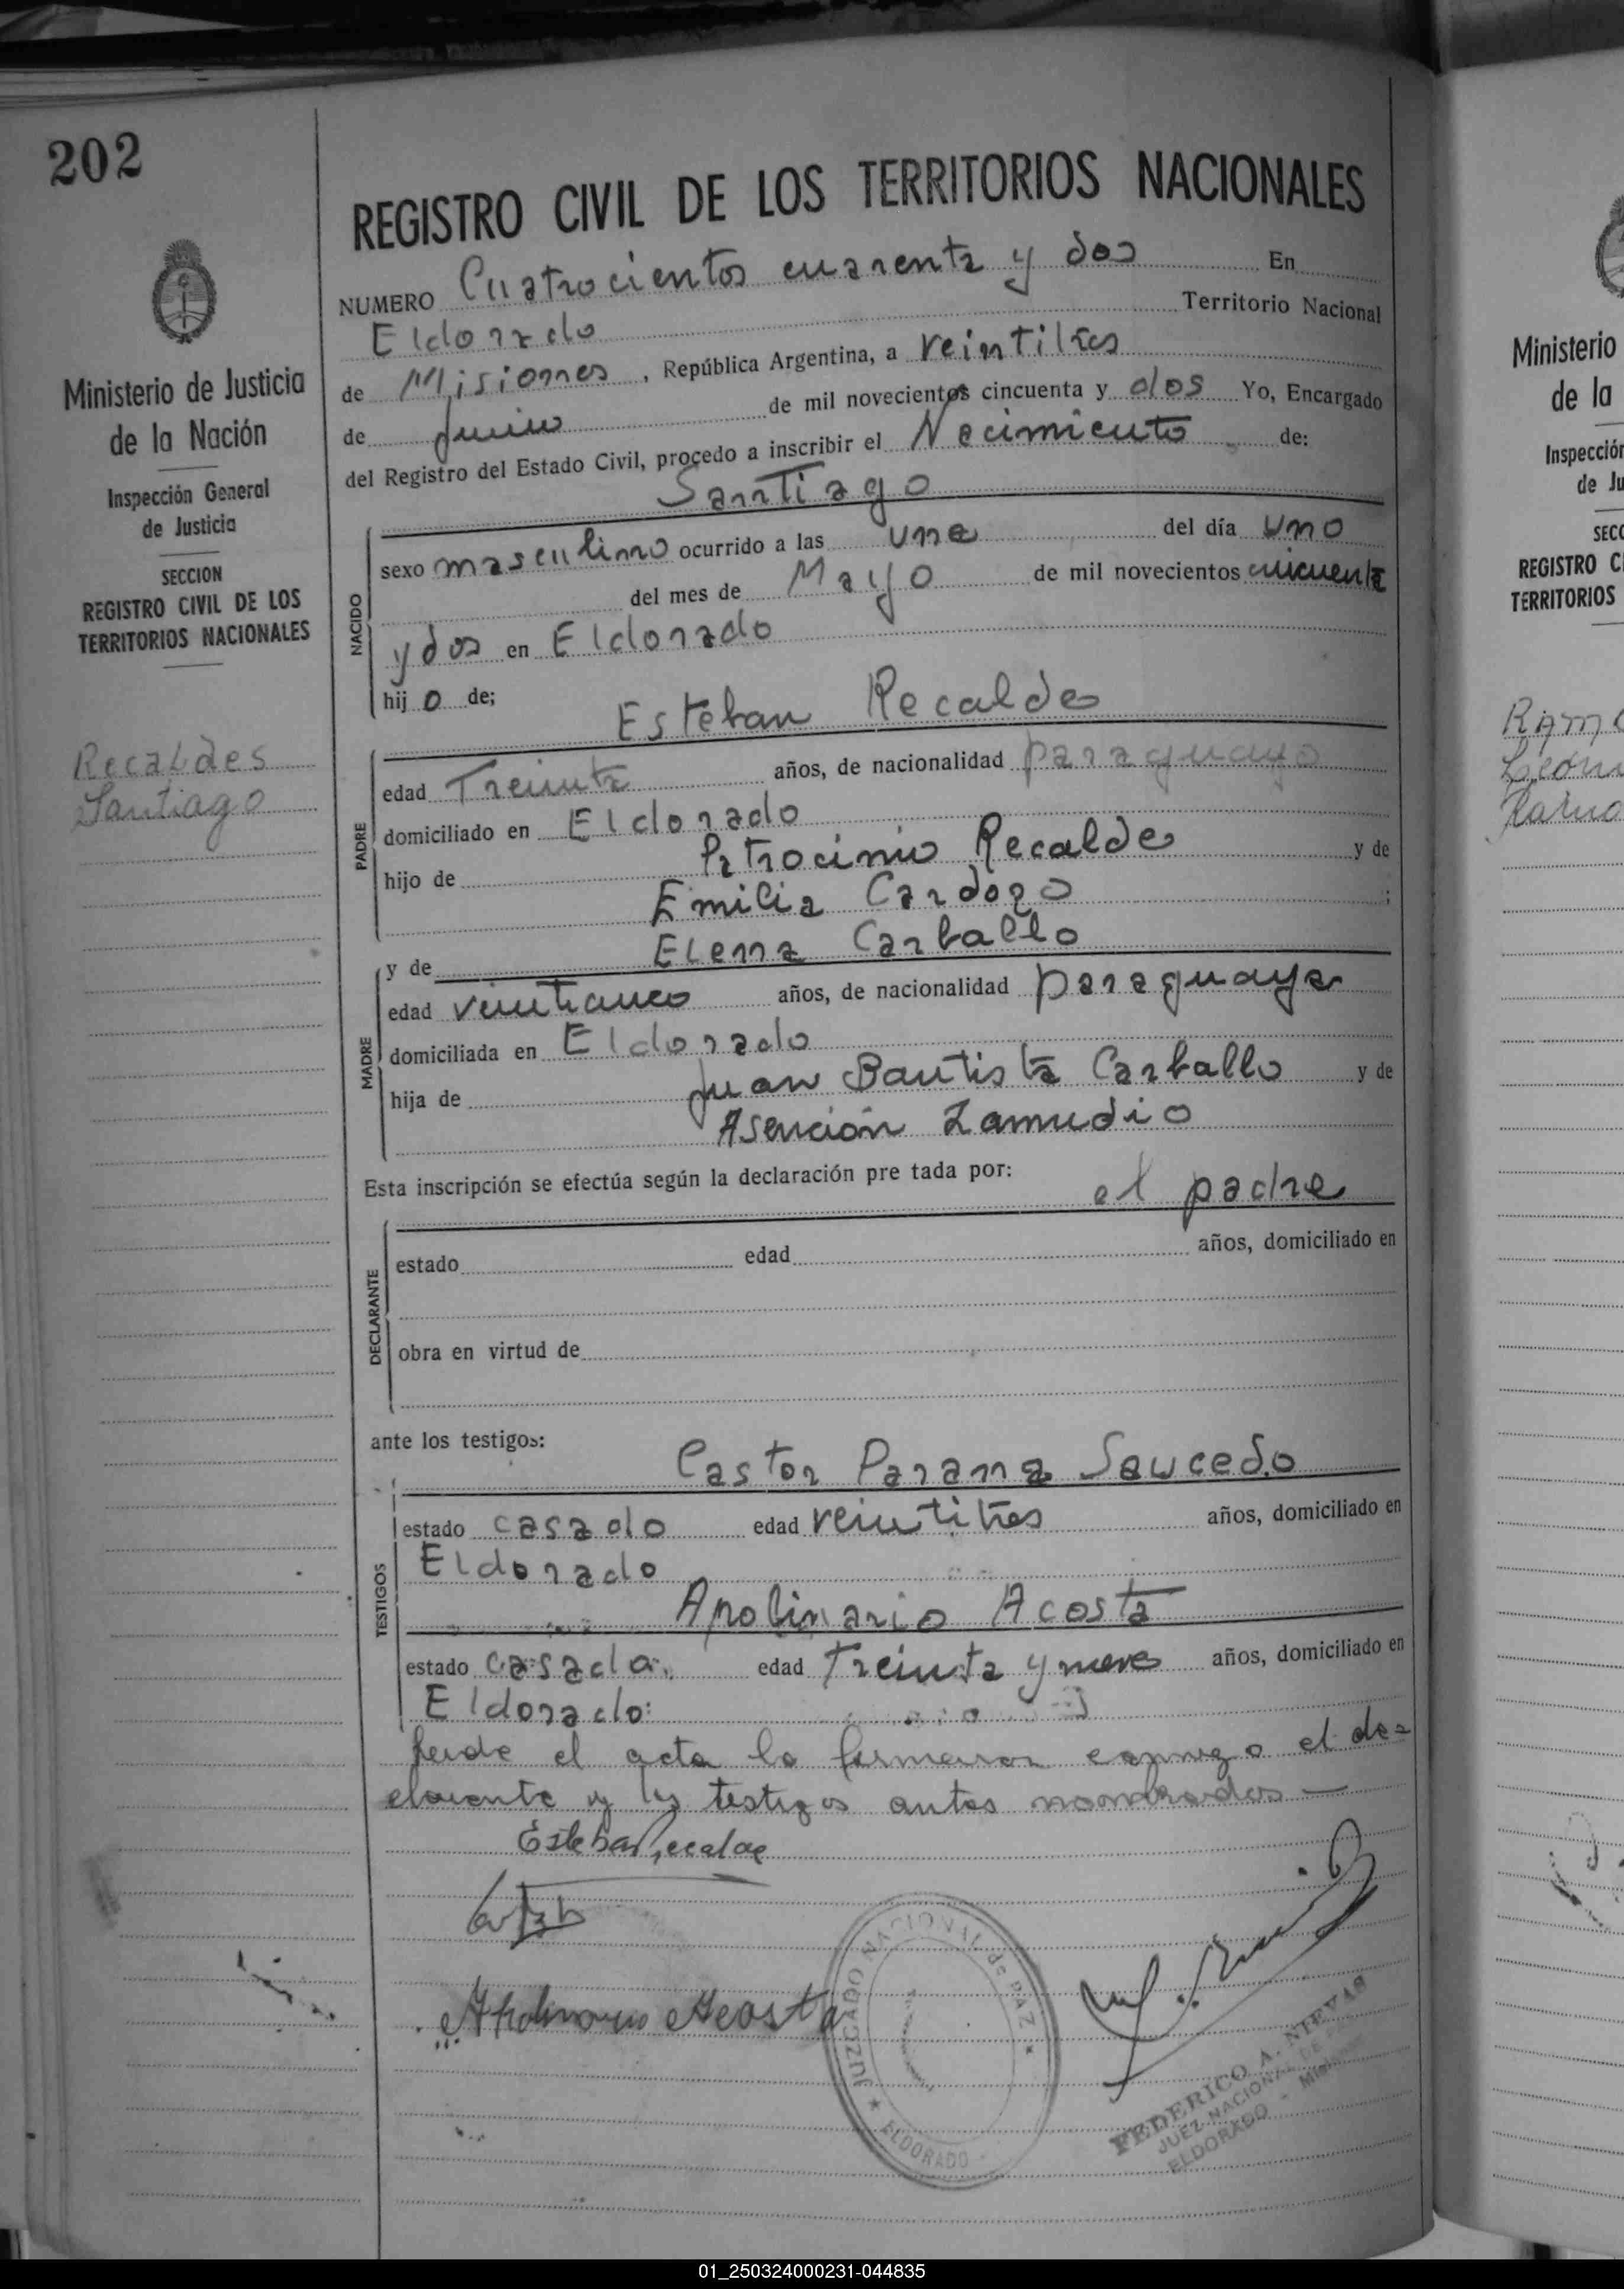 202
Ministerio de Justicia
de la Nación
Inspección General
de Justicia
SECCION
REGISTRO CIVIL DE LOS
TERRITORIOS NACIONALES
Recaldes
Santiago
REGISTRO CIVIL DE LOS TERRITORIOS NACIONALES
NUMERO Cuatrocientos cuarenta y dos En
Eldorado Territorio Nacional
de Misiones, República Argentina, a veintitres
de Junio de mil novecientos cincuenta y dos Yo, Encargado
del Registro del Estado Civil, procedo a inscribir el Nacimiento de:
Santiago
NACIDO
sexo masculino ocurrido a las una del día uno
del mes de Mayo de mil novecientos cincuenta
y dos en Eldorado
hijo de;
Esteban Recalde
PADRE
edad Treinta años, de nacionalidad paraguayo
domiciliado en Eldorado
hijo de Patrocinio Recalde y de
Emilia Cardozo;
y de Elena Carballo
MADRE
edad veinticinco años, de nacionalidad paraguaya
domiciliada en Eldorado
hija de Juan Bautista Carballo y de
Asención Zamudio
Esta inscripción se efectúa según la declaración pre tada por:
el padre
DECLARANTE
estado edad años, domiciliado en
obra en virtud de
ante los testigos:
Castor Parana Saucedo
TESTIGOS
estado casado edad veintitres años, domiciliado en
Eldorado
Apolinario Acosta
estado casado. edad treinta y nueve años, domiciliado en
Eldorado:
el acta la firmaron conmigo el de=
clarante y los testigos antes nombrados —
Esteban Recalde
Apolinario Acosta
JUZGADO NACIONAL de PAZ
ELDORADO
FEDERICO A. NIEVAS
JUEZ NACIONAL DE PAZ
ELDORADO - Misiones
Ministerio
de la
Inspección
de Ju
SECC
REGISTRO C
TERRITORIOS
01_250324000231-044835